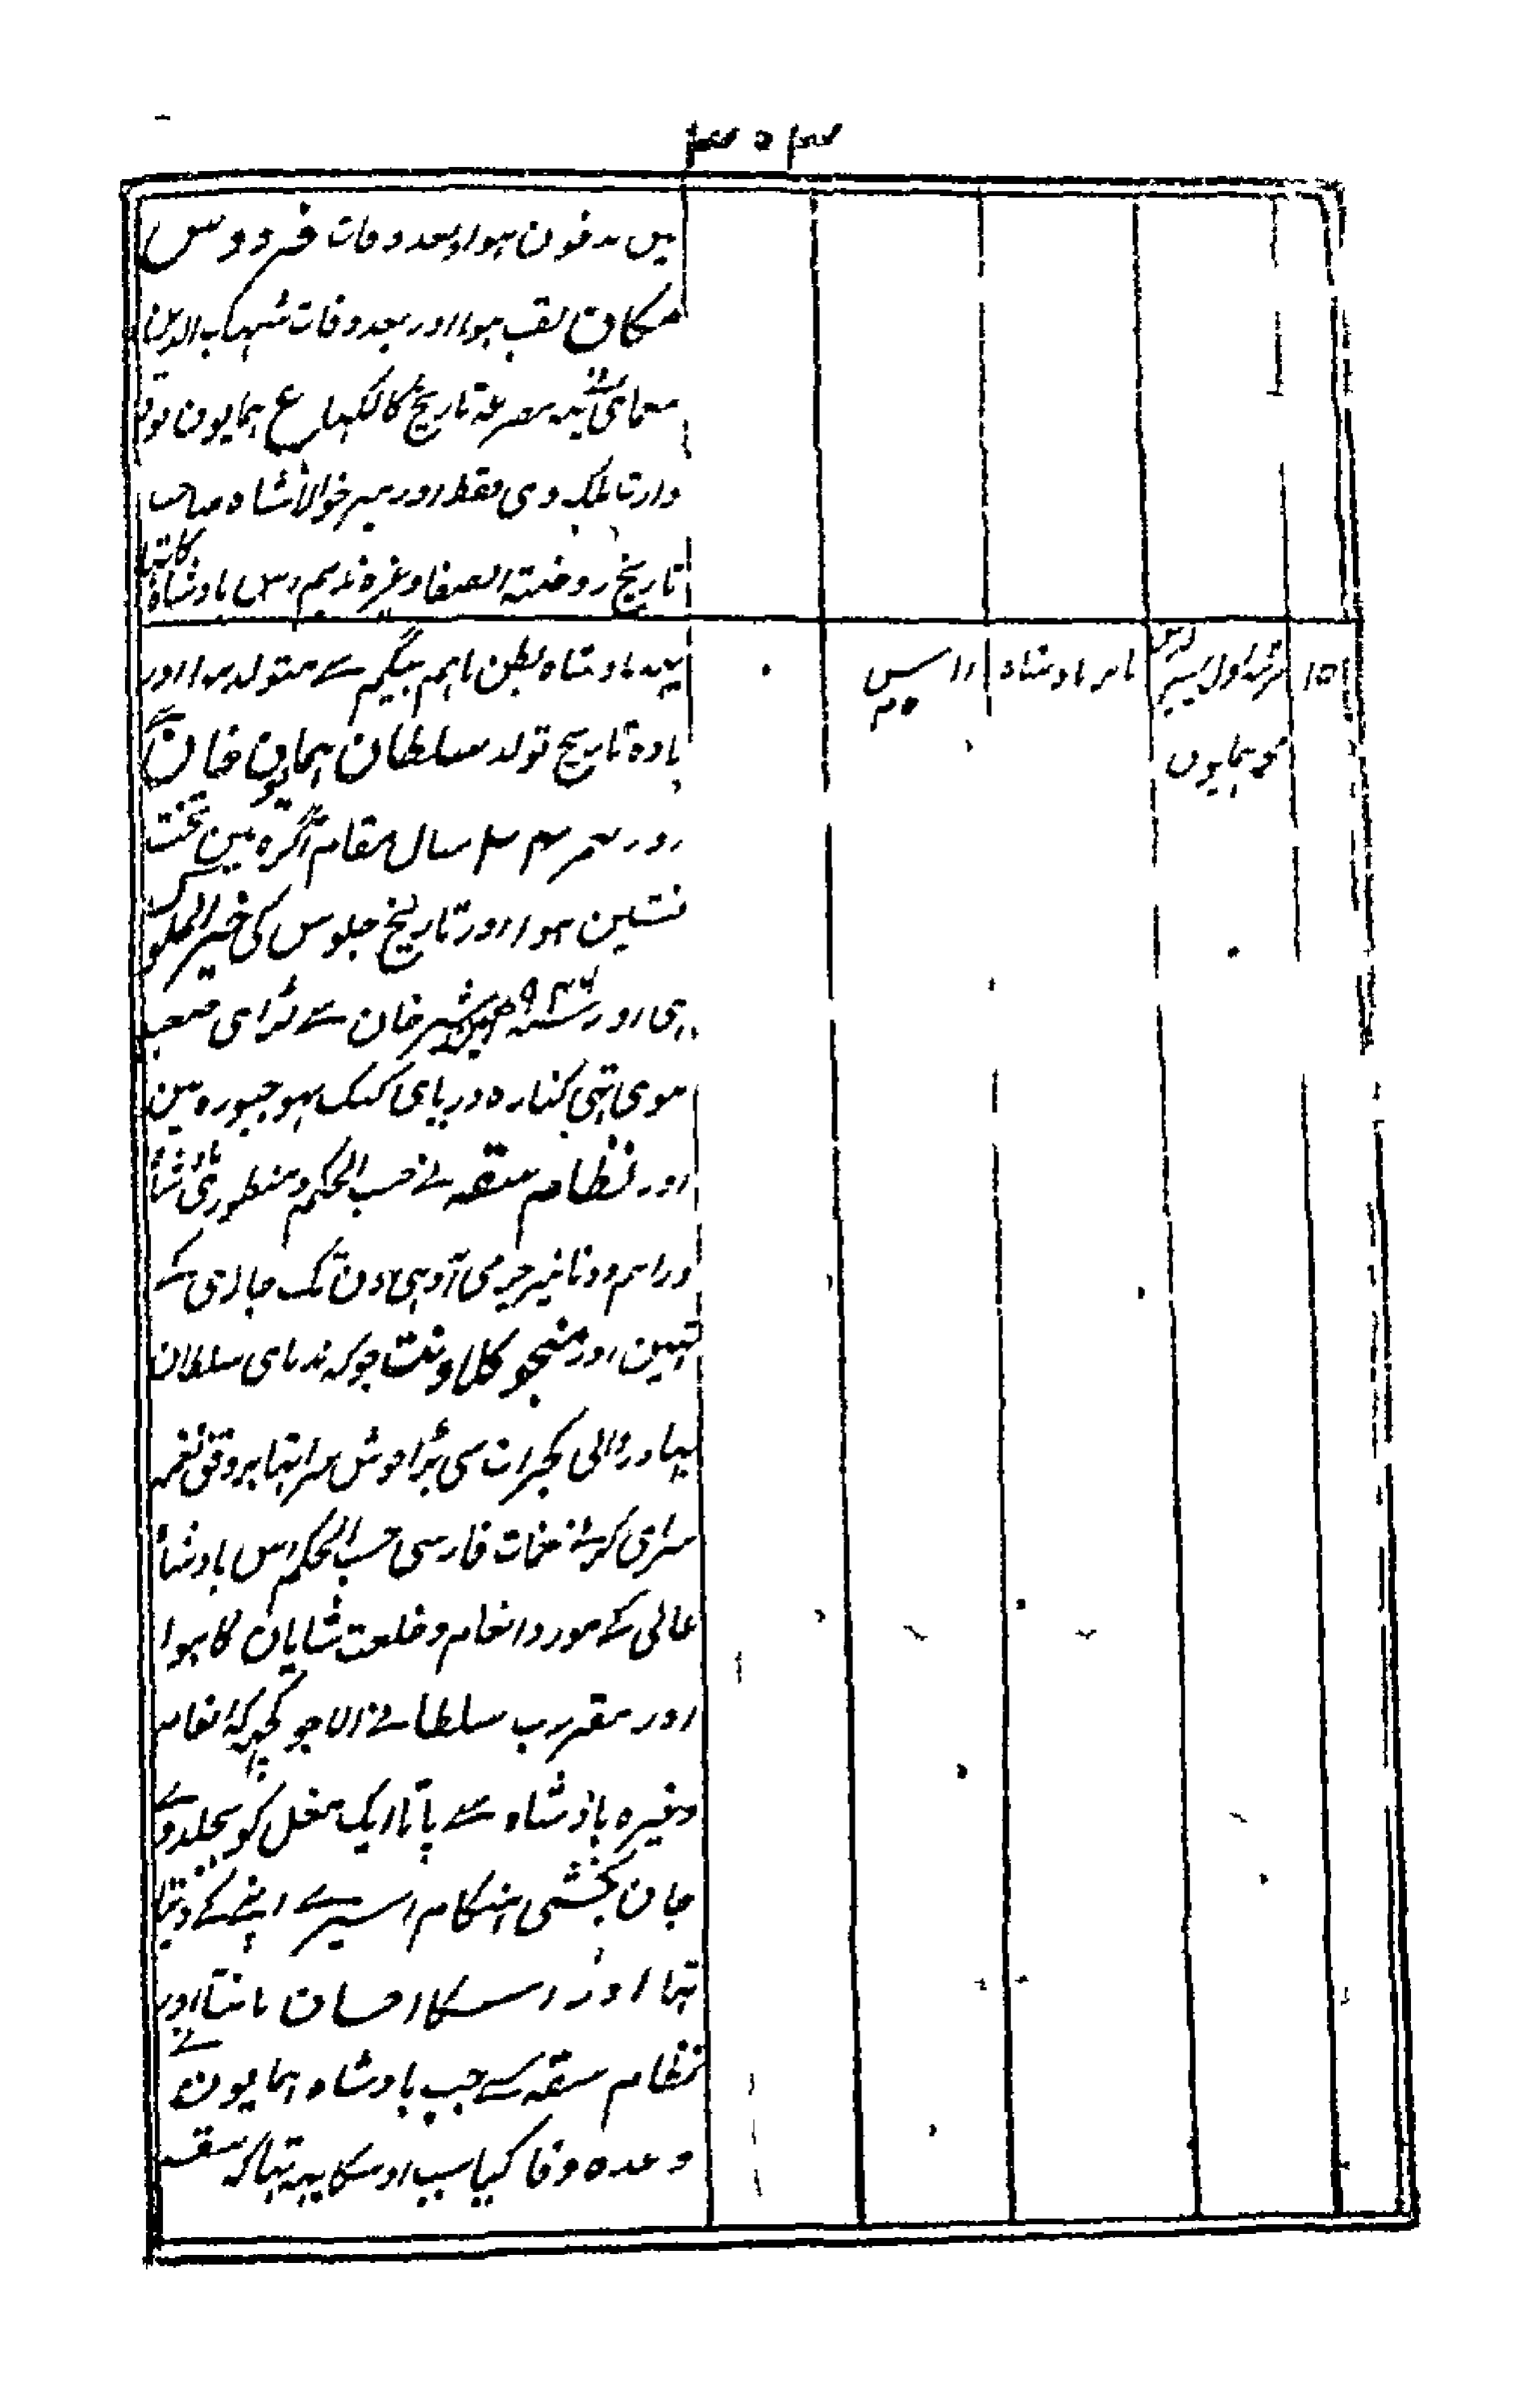 ۳۰۳
میں مدفون ہوا اور بعد وفات فردوس
مکان لقب ہوا اور بعد وفات شہاب الدین
معمای نے یہہ مصرعہ تاریخ کا لکہا ع ہمایون بود
وارث ملک وی فقط اور میر خواند شاہ صاحب
تاریخ روضتہ الصفا وغیرہ ندیم اس بادشاہ کا تہا
۱۵
مرتبہ اول
ہمایوں
بابر بادشاہ
۱۱ برس
یہہ بادشاہ بطن ماہم بیگم سے متولد ہوا اور
مادہ تاریخ تولد سلطان ہمایون خان
اور بعمر ۲۴ سال مقام آگرہ مین تخت
نشین ہوا اور تاریخ جلوس کی خیر الملوک
ہی اور سنہ ۹۴۶ مین شیر خان سے لڑای صعب
ہوی تہی کنارہ دریای گنگ بہوجپور مین
اور نظام سقہ نے حسب الحکم و منظوری بادشاہ
دراہم و دنانیر چرمی آدہی دن تک جاری کے
تہین اور منجو کلاونت جو کہ ندمای سلطان
بہادر والی گجرات سی بڑا خوش سرا تہا بر وقت نغمہ
سرای کرنے نغمات فارسی حسب الحکم اس بادشاہ
عالی کے مورد انعام و خلعت شایان کا ہوا
اور مقرب سلطانے رہا جو کچہہ کہ انعام
وغیرہ بادشاہ سے پاتا ایک مغل کو بجلدوے
جان بخشی ہنگام اسیرے اپنے کے دیتا
تہا اور اسکا احسان مانتا اور
نظام سقہ سے جب بادشاہ ہمایون نے
وعدہ وفا کیا سبب اوسکا یہہ تہا کہ سقہ